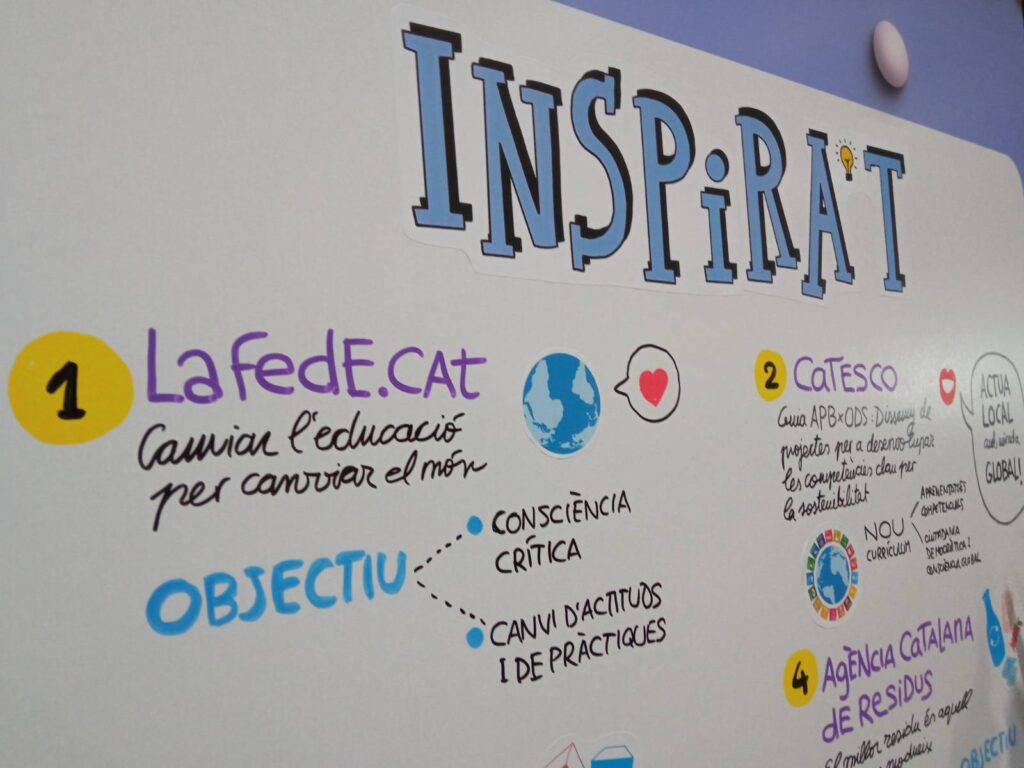 INSPiRA'T
1 LafedE.cat
Canviar l'educació
per canviar el món
OBJECTIU
CONSCIÈNCIA
CRÍTICA
CANVI D'ACTITUDS
I DE PRÀCTIQUES
2 CATESCO
Guia APB×ODS: Disseny de
projectes per a desenvolupar
les competències clau per
la sostenibilitat
NOU
CURRÍCULUM
APRENENTATGES
COMPETENCIALS
CIUTADANIA
DEMOCRÀTICA I
CONSCIÈNCIA GLOBAL
ACTUA
LOCAL
amb mirada
GLOBAL!
4 AGÈNCIA CATALANA
DE RESIDUS
El millor residu és aquell
OBJECTIU